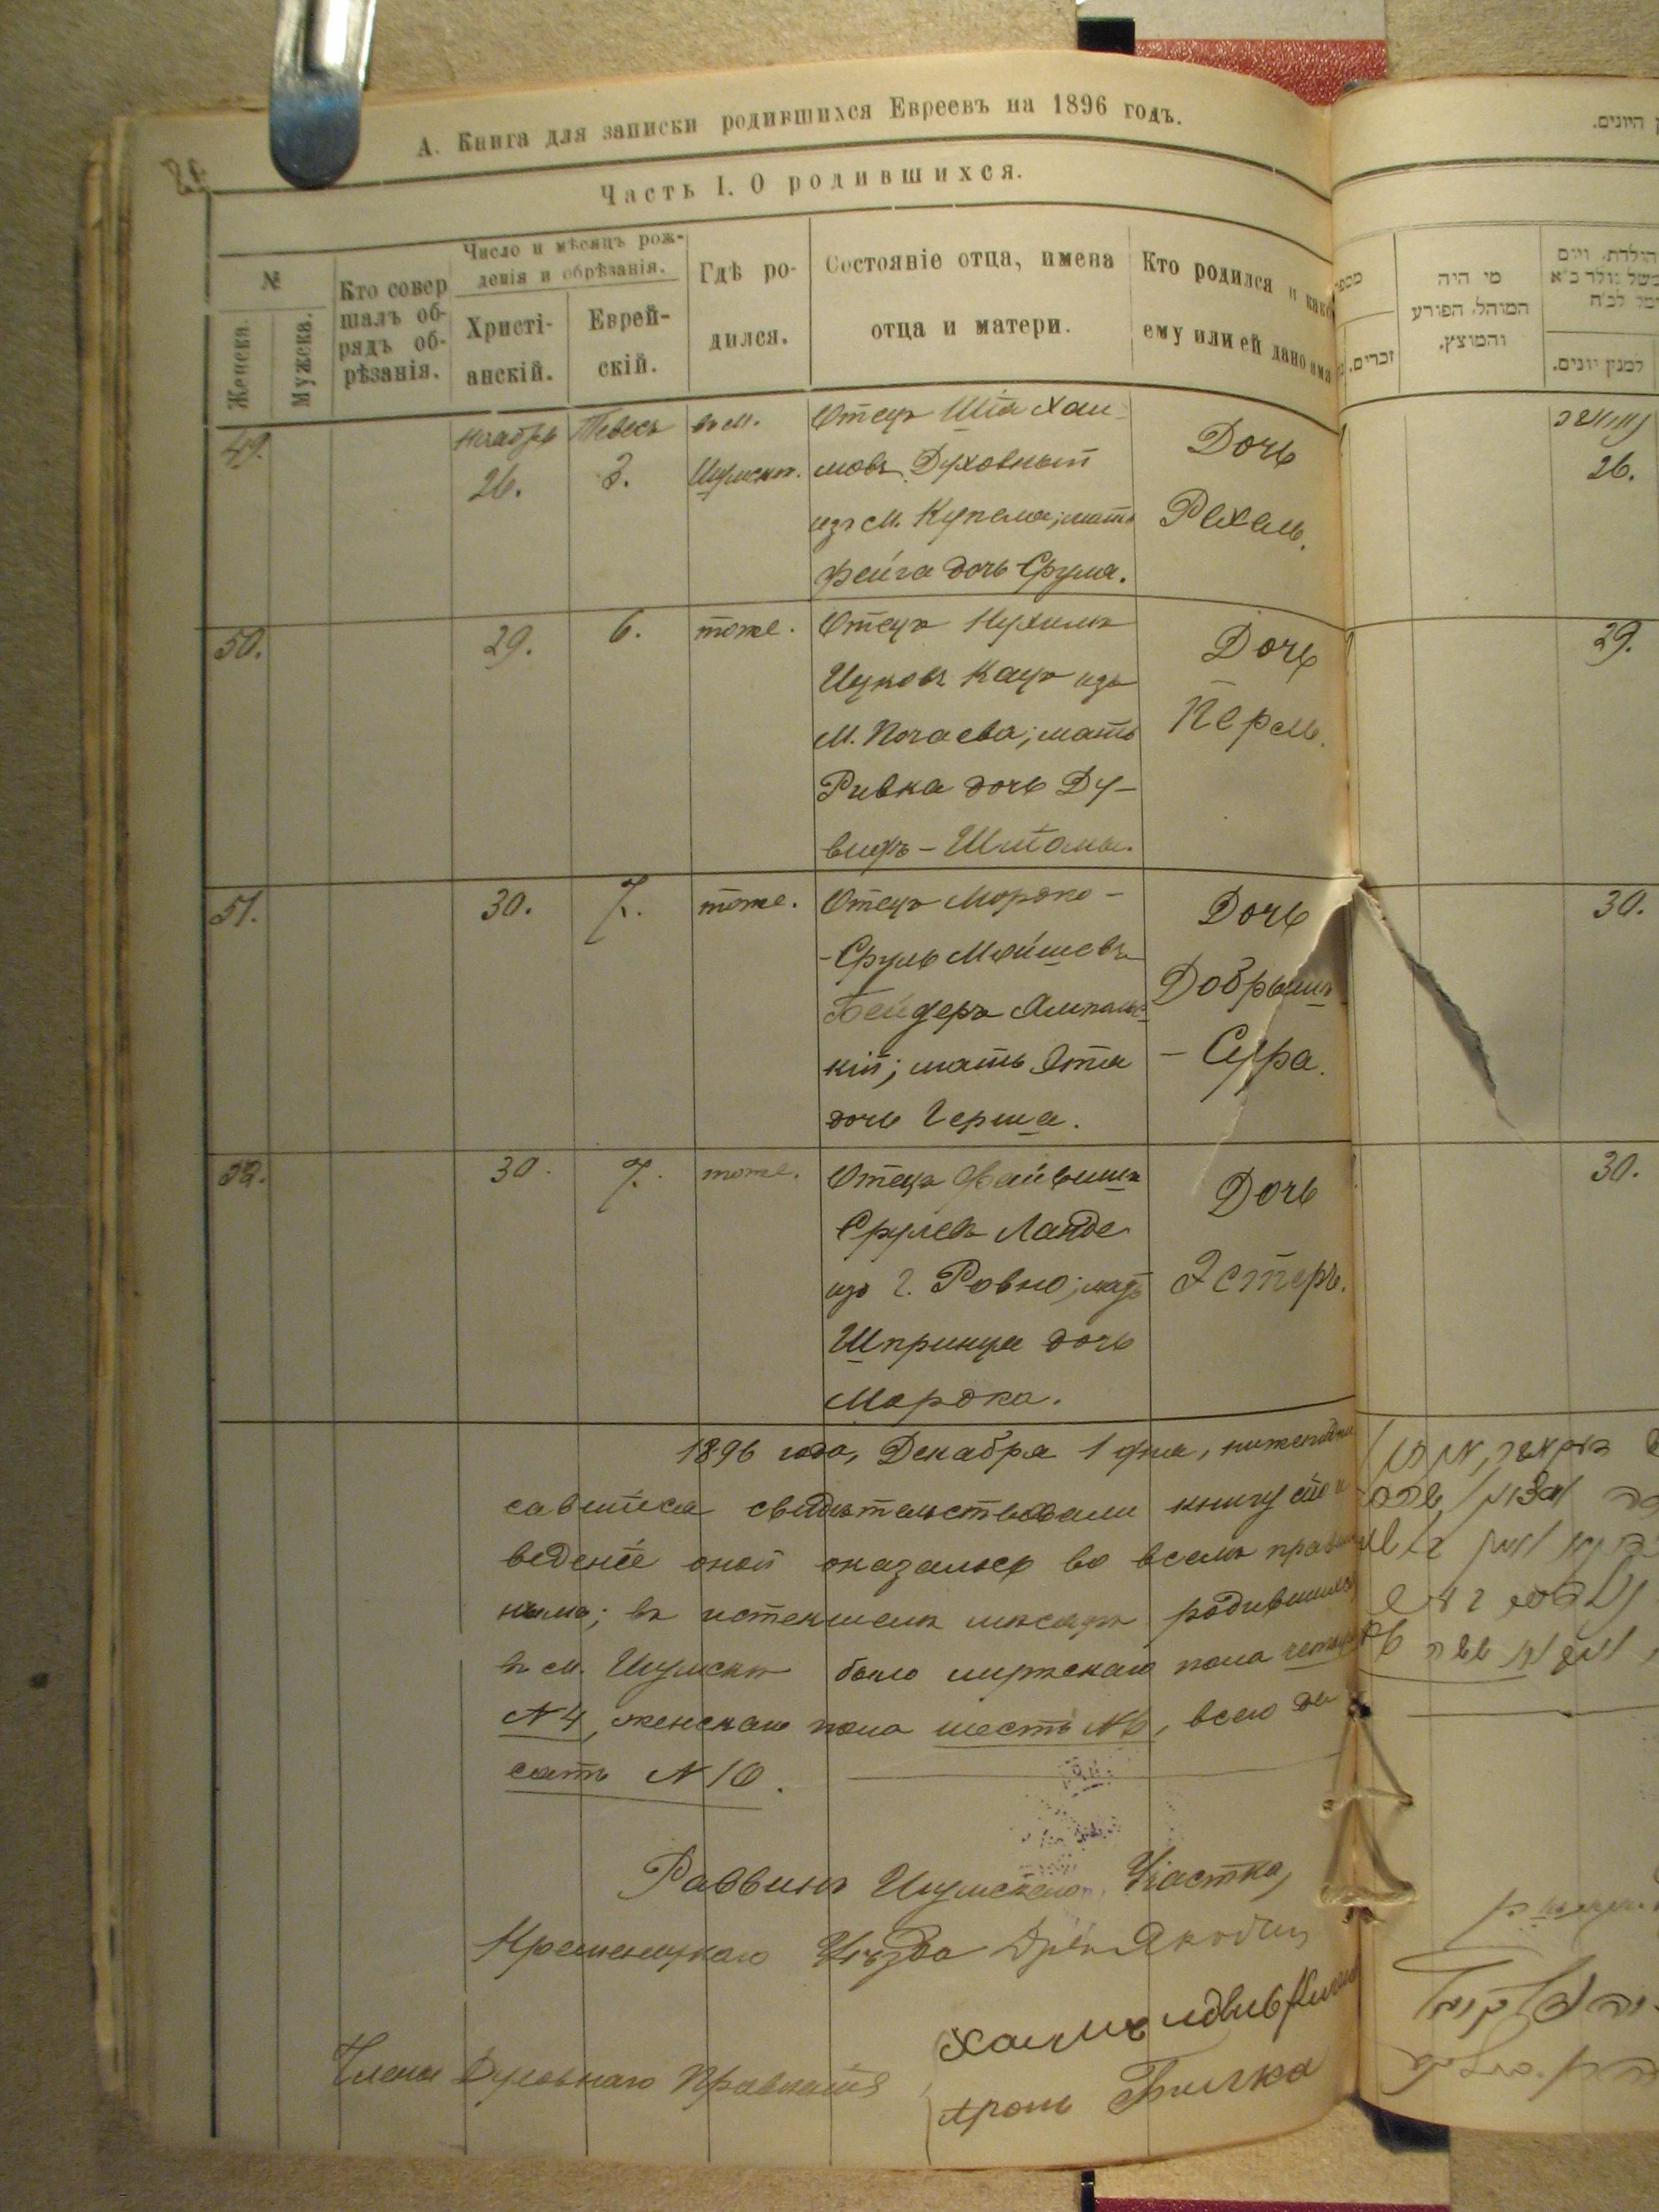 А. Книга для записки родившихся Евреевъ на 1896 годъ.
Часть I. О родившихся.
№
Женска.
Мужска.
Кто совер
шалъ об-
рядъ об-
рѣзанія.
Число и мѣсяцъ рож-
денія и обрѣзанія.
Христі-
анскій.
Еврей-
скій.
Гдѣ ро-
дился.
Состояніе отца, имена
отца и матери.
Кто родился и како
ему или ей дано има
49.
Ноябрь
26.
Тевесъ
3.
въ м.
Шумскѣ.
Отецъ Шіа Хаи-
мовъ Духовный
изъ м. Купеля; мать
Фейга дочь Сруля.
Дочь
Рехель.
50.
29.
6.
тоже.
Отецъ Нухимъ
Ицковъ Кацъ изъ
м. Почаева; мать
Ривка дочь Ду-
видъ-Шлёмы.
Дочь
Перль.
51.
30.
7.
тоже.
Отецъ Мордко-
-Сруль Мойшевъ
Бейдеръ Ямполь-
кій; мать Эта
дочь Герша.
Дочь
Добрышъ
- Сура.
52.
30.
7.
тоже.
Отецъ Файвишъ
Срулевъ Ланде
изъ г. Ровно; мать
Шпринца дочь
Мордка.
Дочь
Эстеръ.
1896 года, Декабря 1 дня, нижеподпи
савшіеся свидѣтельствовали книгу сію и
веденіе оной оказалось во всемъ правиль
нымъ; въ истекшемъ мѣсяцѣ родившихся
въ м. Шумскѣ было мужскаго пола четыре
№ 4, женскаго пола шесть № 6, всего де
сять № 10.
Раввинъ Шумскаго Участка,
Кременецкаго Уѣзда
Хаимъ
Члены Духовнаго Правленія
מי היה
המוהל, הפורע
והמוצץ.
זכרים.
למנין יונים.
26.
29.
30.
30.